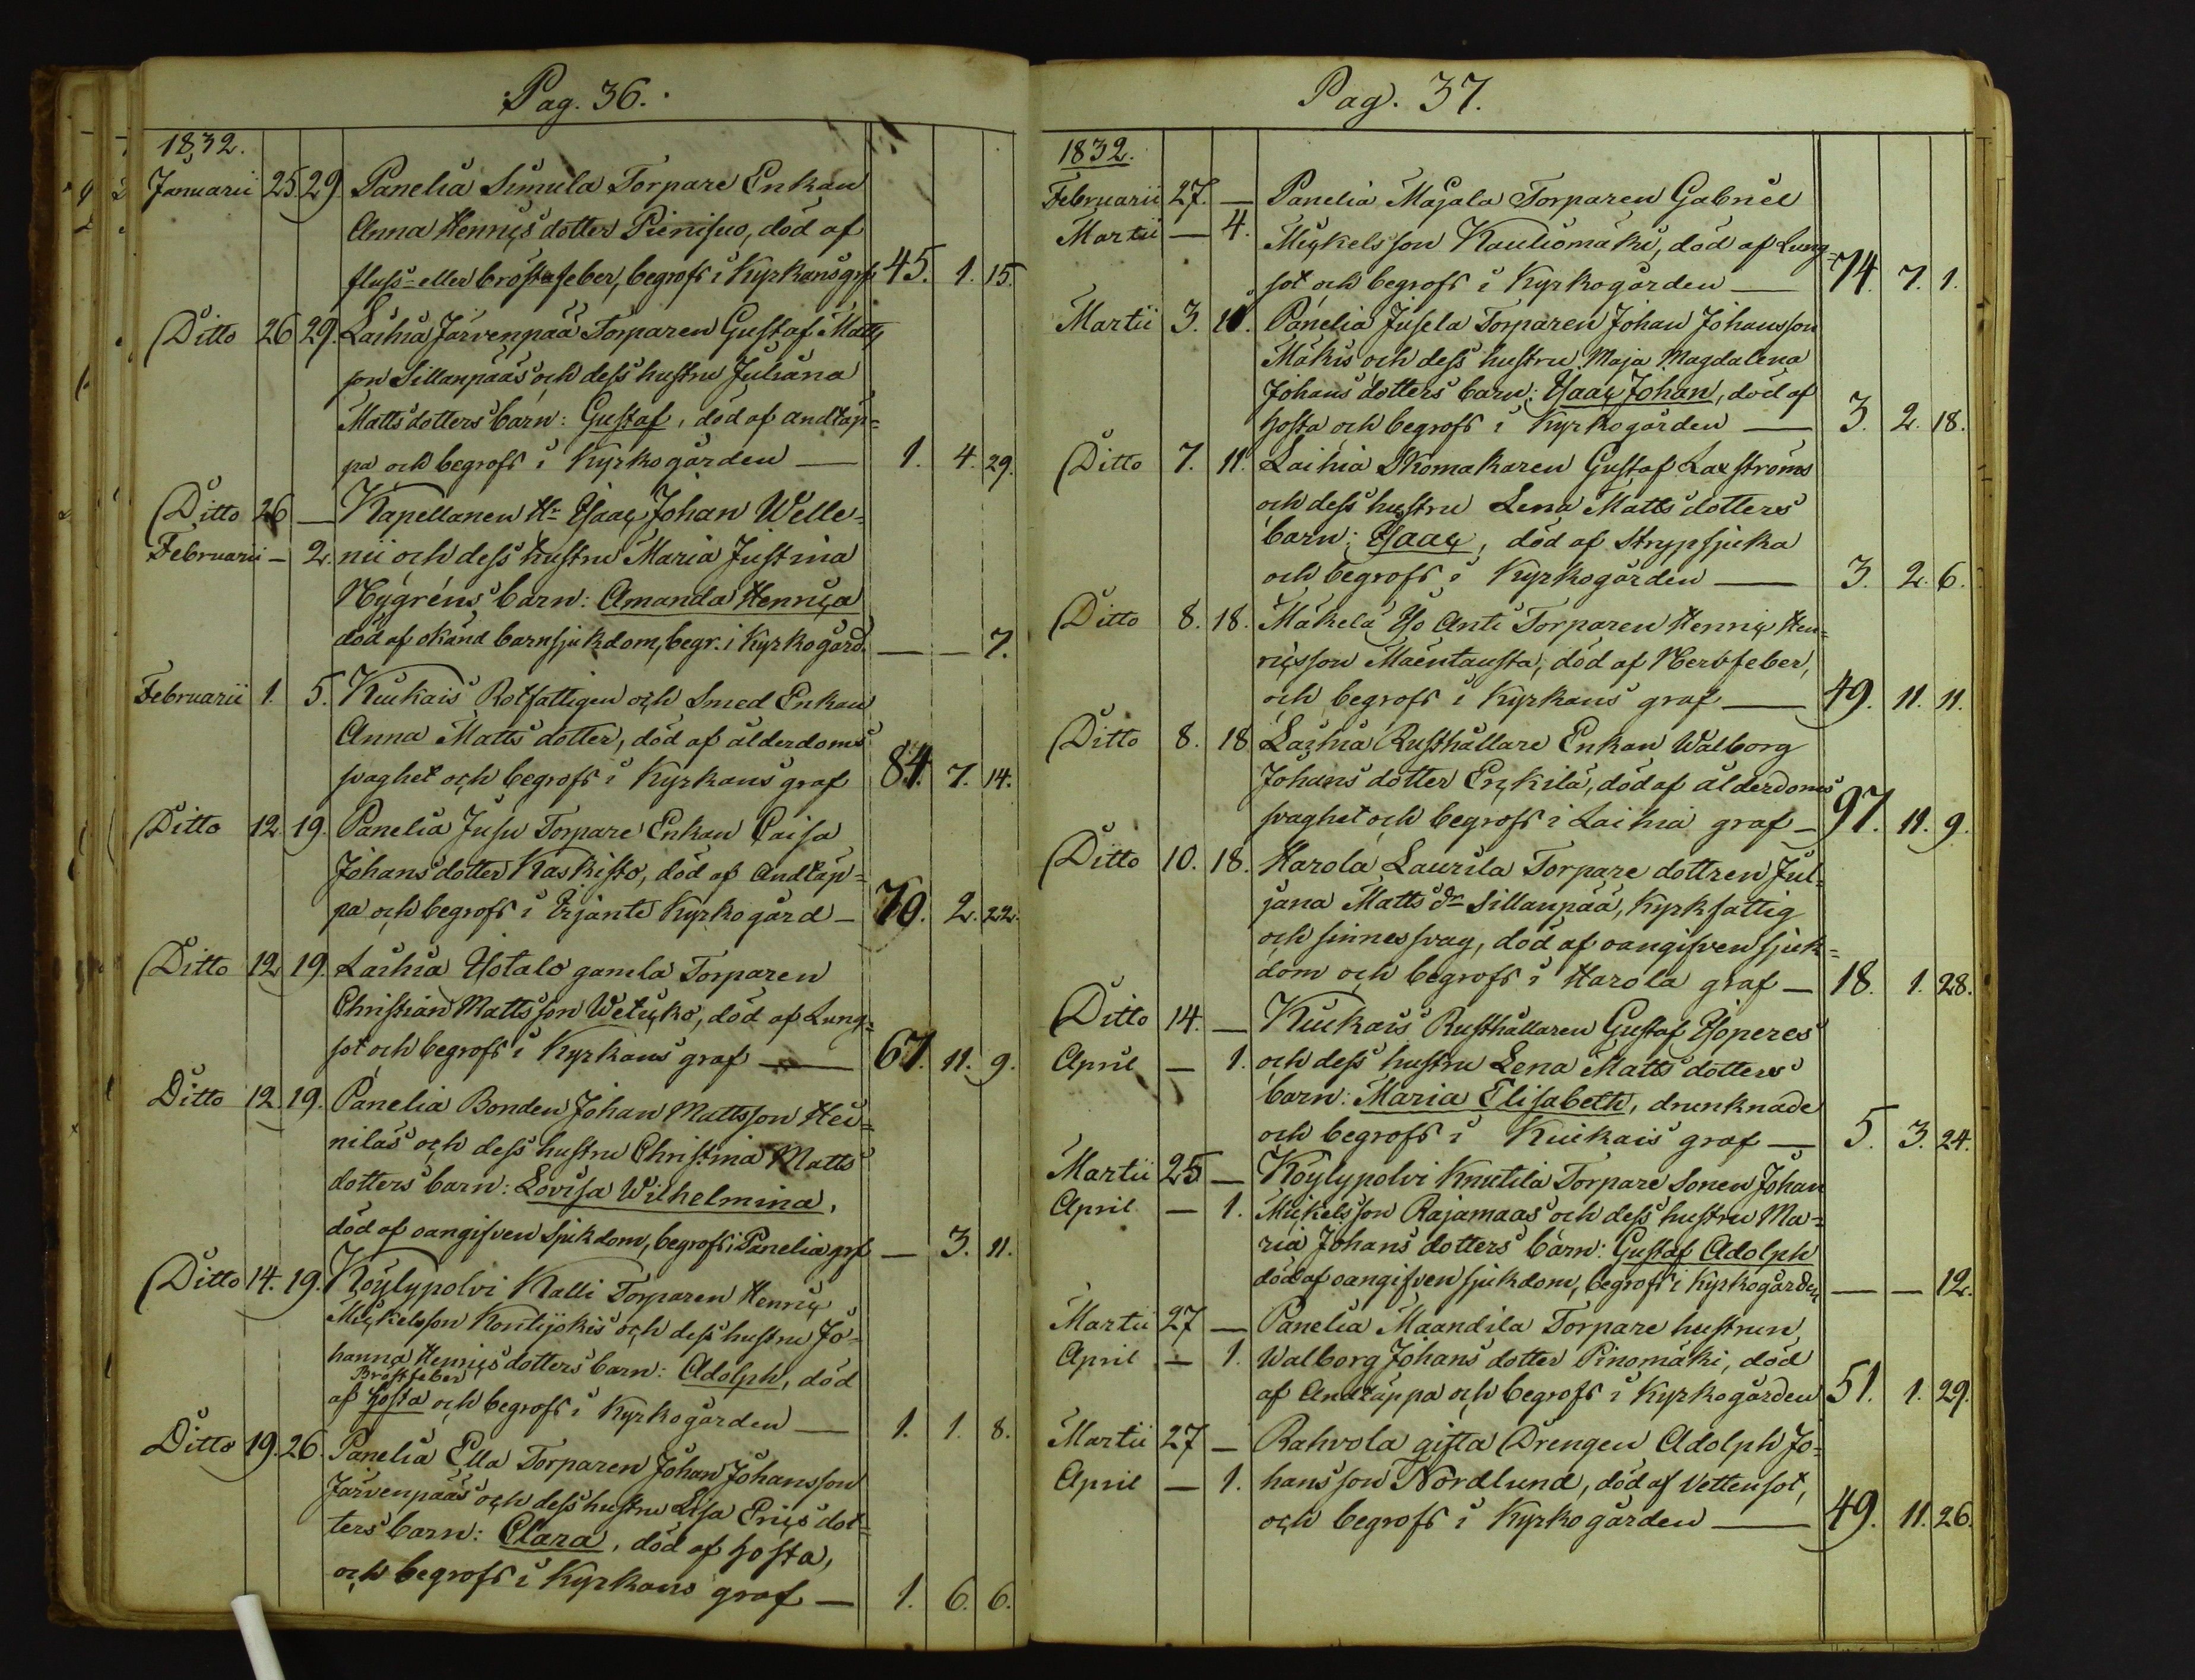 Pag. 36.
1832.
Januarii 25. 29. Panelia Simula Torpare Enkan
Anna Henrics dotter Pienisuo, död af
fluss- eller bröstfeber, begrofs i Kyrkans grf 45. 1. 15.
Ditto 26 29. Laihia Järvenpää Torparen Gustaf Matts
son Sillanpääs och dess hustru Juliana
Matts dotters barn: Gustaf, död af andtäp=
pa och begrofs i Kyrkogården — 1. 4. 29.
Ditto 26 — Kapellanen Hr Isaac Johan Welle=
Februarii — 2. nii och dess hustru Maria Justina
Nygréns barn: Amanda Henrica
död af okänd barnsjukdom, begr. i Kyrkogård. — — 7.
Februarii 1. 5. Kiukais Rotfattigen och Smed Enkan
Anna Matts dotter, död af ålderdoms
svaghet och begrofs i Kyrkans graf 84. 7. 14.
Ditto 12 19. Panelia Jusu Torpare Enkan Caisa
Johans dotter Kaskisto, död af Andtäp=
pa och begrofs i Irjante Kyrkogård — 70. 2. 22.
Ditto 12 19. Laihia Isotalo gamla Torparen
Christian Matts son Weticko, död af Lung=
sot och begrofs i Kyrkans graf — 67. 11. 9.
Ditto 12 19. Panelia Bonden Johan Mattsson Hei=
niläs och dess hustru Christina Matts
dotters barn: Lovisa Wilhelmina,
död af oangifven Sjukdom, begrofs i Panelia grf — 3. 11.
Ditto 14. 19. Köylypolvi Kalli Torparen Henric
Mickelsson Kontijokis och dess hustru Jo=
hanna Henrics dotters barn: Adolph, död
Bröstfeber
af hosta och begrofs i Kyrkogården — 1. 1. 8.
Ditto 19. 26. Panelia Ella Torparen Johan Johansson
Järvenpääs och dess hustru Lisa Erics dot=
ters barn: Clara, död af hosta,
och begrofs i Kyrkans graf — 1. 6. 6.
Pag. 37.
1832.
Februarii 27. — Panelia Majala Torparen Gabriel
Martii — 4. Mickelsson Kauliomäki, död af Lung=
sot och begrofs i Kyrkogården — 74. 7. 1.
Martii 3. 11. Panelia Jusela Torparen Johan Johansson
Mäkis och dess hustru Maja Magdalena
Johans dotters barn: Isaac Johan, död af
hosta och begrofs i Kyrkogården — 3. 2. 18.
Ditto 7. 11. Laihia Skomakaren Gustaf Laxströms
och dess hustru Lena Matts dotters
barn: Isaac, död af Strypsjuka
och begrofs i Kyrkogården — 3. 2. 6.
Ditto 8. 18. Mäkelä Iso Anti Torparen Henric Hen=
ricsson Mäentausta, död af Nervfeber,
och begrofs i Kyrkans graf — 49. 11. 11.
Ditto 8. 18 Laihia Rusthållare Enkan Walborg
Johans dotter Erckilä, död af ålderdoms
svaghet och begrofs i Laihia graf — 97. 11. 9.
Ditto 10. 18. Harola Laurila Torpare dottren Jul=
jana Matts dr Sillanpää, Kyrkfattig
och sinnessvag, död af oangifven sjuk=
dom och begrofs i Harola graf — 18. 1. 28.
Ditto 14. — Kiukais Rusthållaren Gustaf Isoperes
April — 1. och dess hustru Lena Matts dotters
barn: Maria Elisabeth, drunknade
och begrofs i Kiukais graf — 5. 3. 24.
Martii 25 — Köylypolvi Knutila Torpare Sonen Johan
April — 1. Mickelsson Rajamaas och dess hustru Ma=
ria Johans dotters barn: Gustaf Adolph
död af oangifven sjukdom, begrofs i Kyrkogården — — 12.
Martii 27 — Panelia Maandila Torpare hustrun
April — 1. Walborg Johans dotter Pinomäki, död
af Andtäppa och begrofs i Kyrkogården 51. 1. 29.
Martii 27 — Rahvola gifta Drengen Adolph Jo=
April — 1. hansson Nordlund, död af Vattensot,
och begrofs i Kyrkogården — 49. 11. 26.